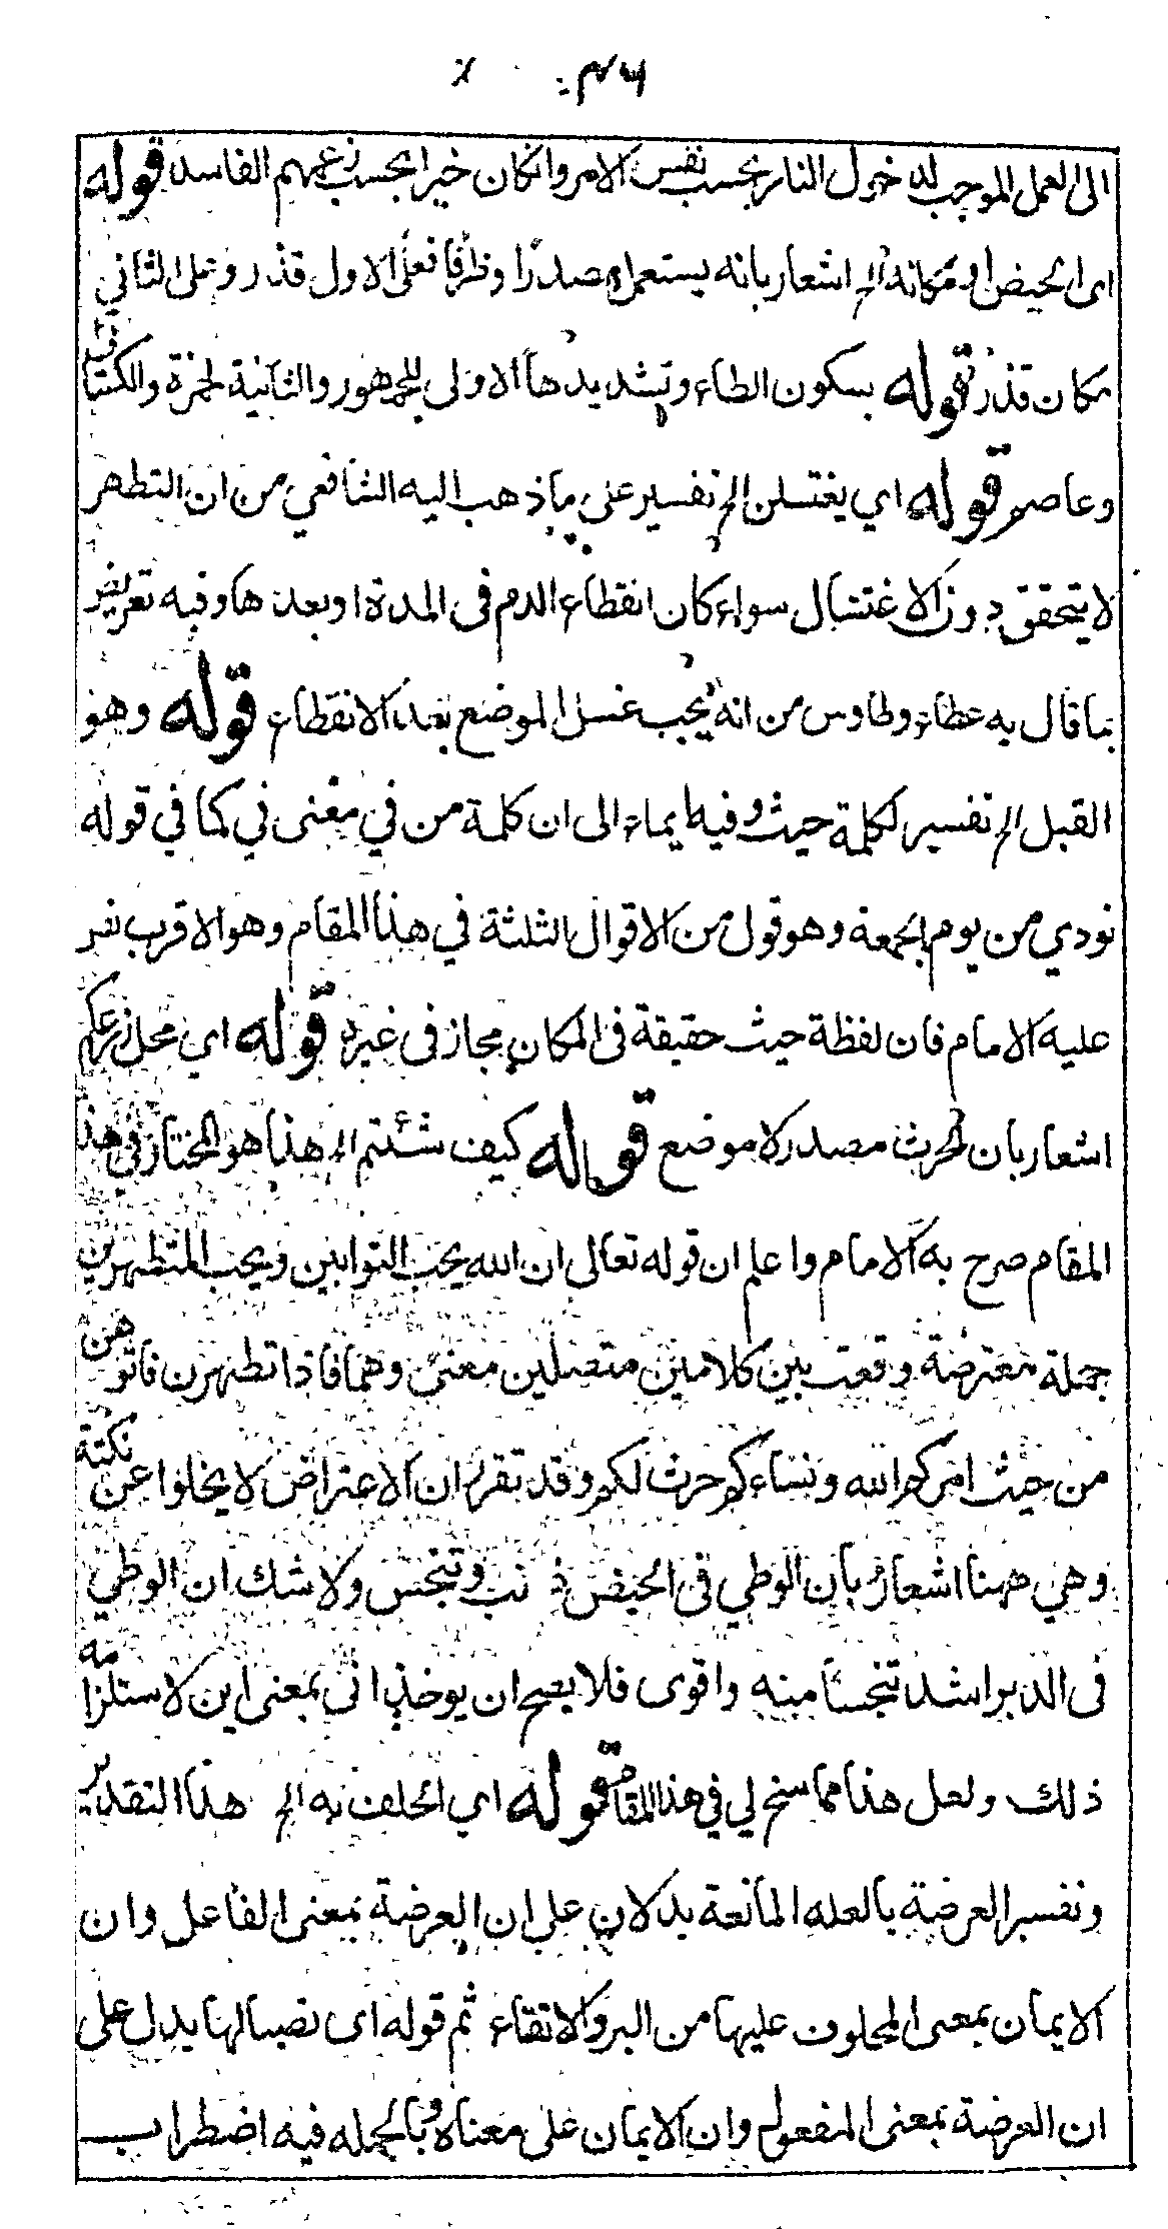 الى العمل الموجب لدخول النار بحسب نفس الامر وان كان خيرا بحسب زعمهم الفاسد قوله
اى الحيض او مكانه الخ اشعار بانه يستعمل مصدرا وظرفا فعلى الاول قذر وعلى الثاني
مكان قذر قوله بسكون الطاء وتشديدها الاولى للجمهور والثانية لحمزة والكسائي
وعاصم قوله اي يغتسلن الخ تفسير على ما ذهب اليه الشافعي من ان التطهر
لا يتحقق دون الاغتسال سواء كان انقطاع الدم فى المدة او بعدها وفيه تعريض
بما قال به عطاء وطاوس من انه يجب غسل الموضع بعد الانقطاع قوله وهو
القبل الخ تفسير لكلمة حيث وفيه ايماء الى ان كلمة من في معنى في كما في قوله
نودي من يوم الجمعة وهو قول من الاقوال الثلثة في هذا المقام وهو الاقرب نص
عليه الامام فان لفظة حيث حقيقة فى المكان مجاز فى غيره قوله اي محل زرعكم
اشعار بان الحرث مصدر لا موضع قوله كيف شئتم الخ هذا هو المختار في هذا
المقام صرح به الامام واعلم ان قوله تعالى ان الله يحب التوابين ويحب المتطهرين
جملة معترضة وقعت بين كلامين متصلين معنى وهما فاذا تطهرن فاتوهن
من حيث امركم الله ونساءكم حرث لكم وقد تقرر ان الاعتراض لا يخلوا عن نكتة
وهي ههنا اشعار بان الوطي فى الحيض ذنب وتنجس ولا شك ان الوطي
فى الدبر اشد تنجسا منه واقوى فلا يصح ان يوخذ انى بمعنى اين لاستلزامه
ذلك ولعل هذا مما سنح لي في هذا المقام قوله اي الحلف به الخ هذا التقدير
وتفسير العرضة بالعله المانعة يدلان على ان العرضة بمعنى الفاعل وان
الايمان بمعنى المحلوف عليها من البر والاتقاء ثم قوله اى نصبا لها يدل على
ان العرضة بمعنى المفعول وان الايمان على معناه وبالجمله فيه اضطراب